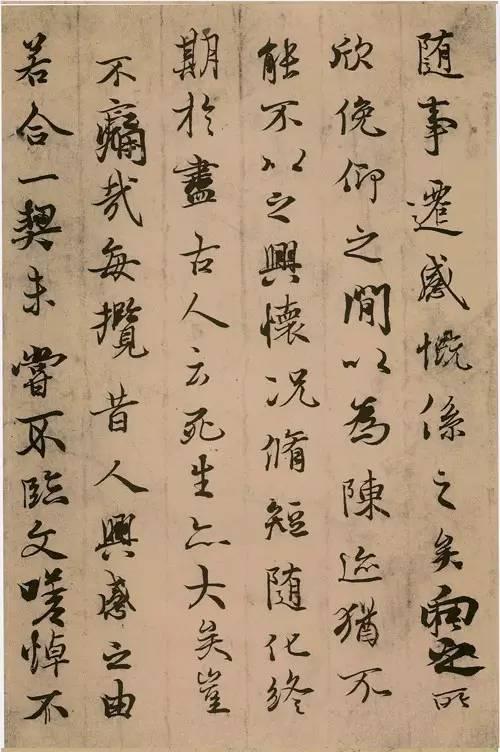 随事遷感慨係之矣向之所
欣俛仰之閒以為陳迹猶不
能不以之興懷況脩短随化終
期於盡古人云死生亦大矣豈
不痛哉每攬昔人興感之由
若合一契未嘗不臨文嗟悼不